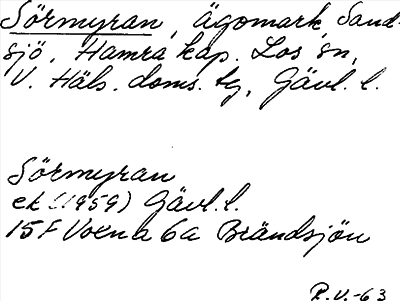 Sörmyran, ägomark, Sand-
sjö, Hamra kap. Los sn,
V. Häls. doms. tg, Gävl. l.
Sörmyran
ek (1959) Gävl. l.
15F Voxna 6a Brändsjön
R.V.-63